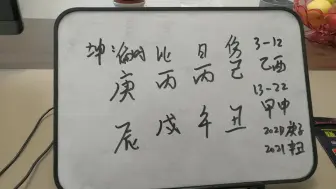 坤: 偏财 比 日 伤 3-12
庚 丙 丙 己 乙酉
13-22
甲申
辰 戌 午 丑 2020 庚子
2021 辛丑